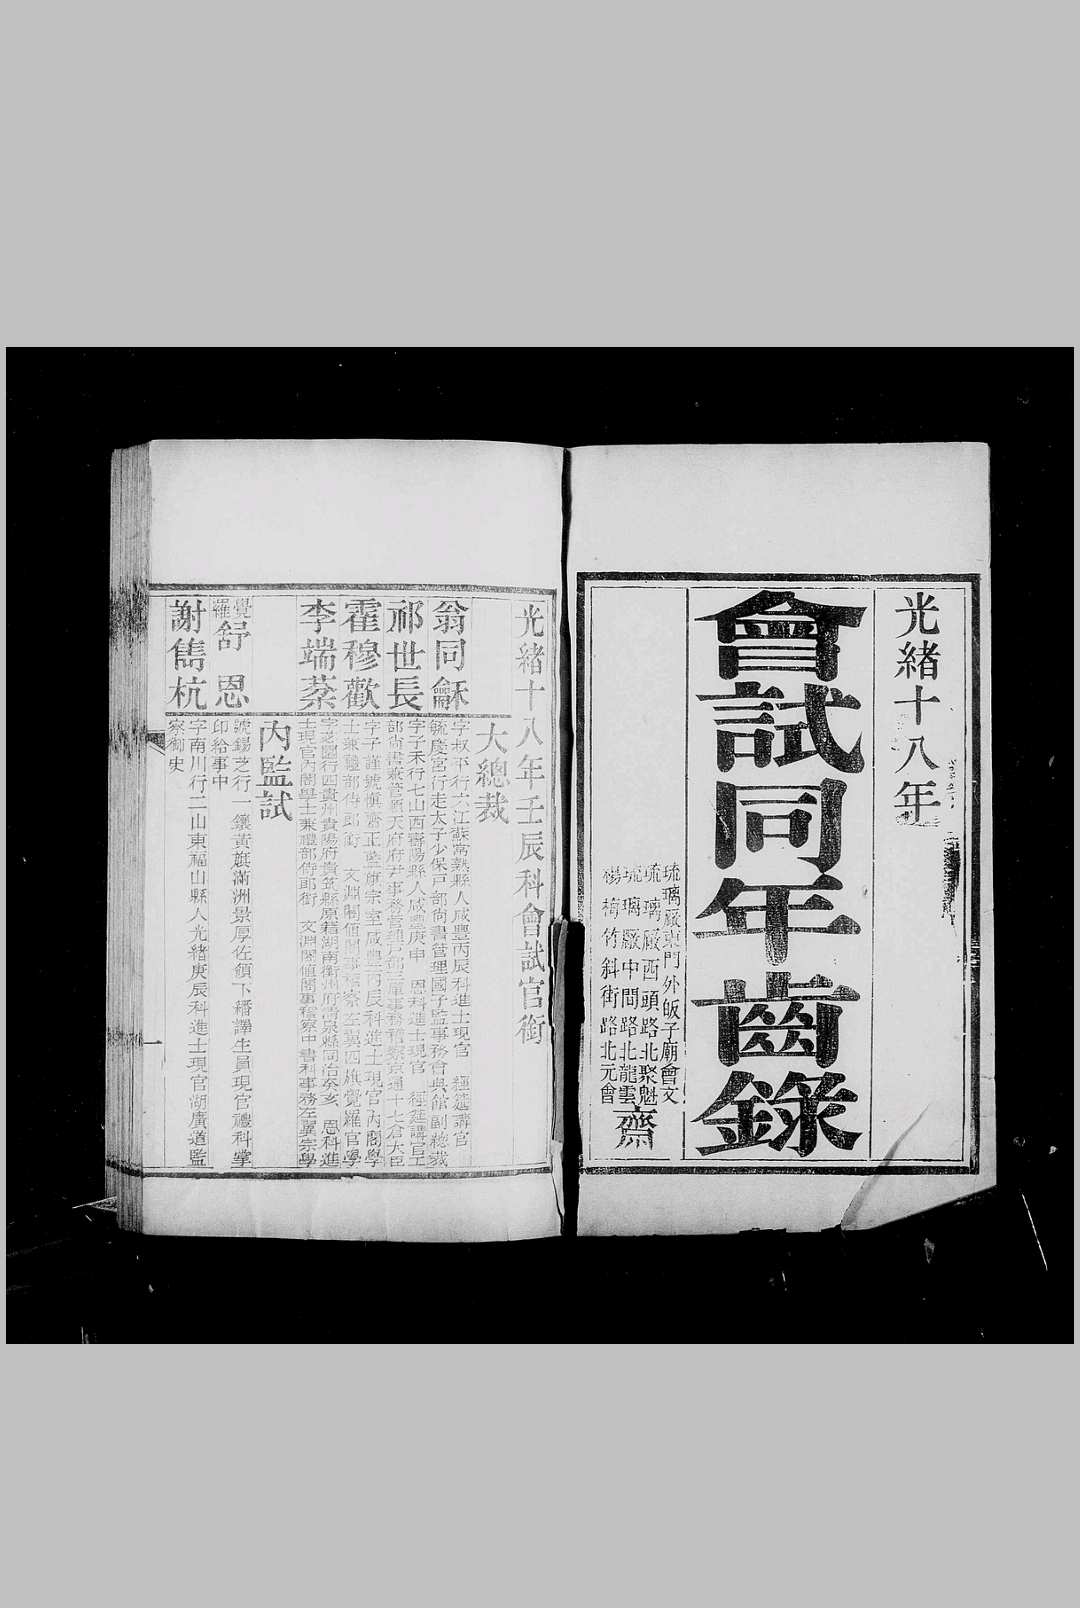 光緒十八年
會試同年齒錄
琉璃廠東門外皈子廟會文
琉璃廠西頭路北聚魁
琉璃廠中間路北龍雲
楊梅竹斜街路北元會
齋
光緒十八年壬辰科會試官銜
大總裁
翁同龢
字叔平行六江蘇常熟縣人咸豐丙辰科進士現官 經筵講官
毓慶宮行走太子少保戶部尚書管理國子監事務會典館副總裁
祁世長
字子禾行七山西壽陽縣人咸豐庚申 恩科進士現官 經筵講官工
部尚書兼管順天府府尹事務管理八部三庫事務稽察京通十七倉大臣
霍穆歡
字子謹號慎齋正藍旗宗室咸豐丙辰科進士現官內閣學
士兼禮部侍郎銜 文淵閣直閣事稽察左翼四旗覺羅官學
李端棻
字芝園行四貴州貴陽府貴筑縣原籍湖南衡州府清泉縣同治癸亥 恩科進
士現官內閣學士兼禮部侍郎銜 文淵閣值閣事稽察中書科事務左翼宗學
內監試
覺羅舒恩
號錫芝行一鑲黃旗滿洲景厚佐領下繙譯生員現官禮科掌
印給事中
謝雋杭
字南川行二山東福山縣人光緒庚辰科進士現官湖廣道監
察御史
一